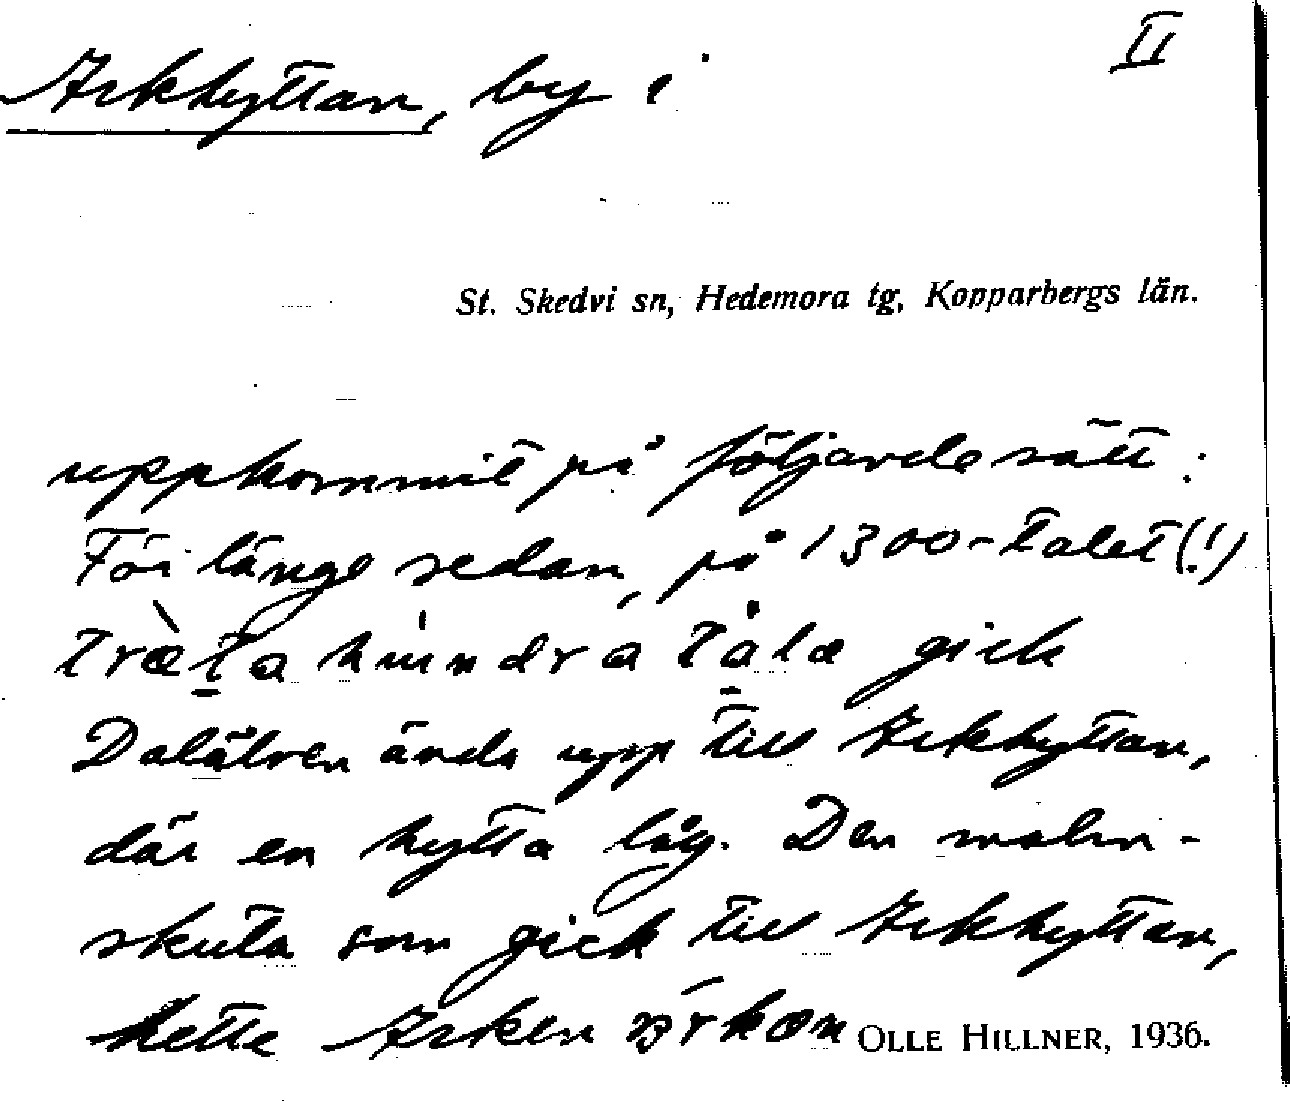 II
Arkhyttan, by i
St. Skedvi sn, Hedemora tg, Kopparbergs län.
uppkommit på följande sätt:
För länge sedan, på 1300-talet (!)
træ̀ta hundra tåla gick
Dalälven ända upp till Arkhyttan,
där en hytta låg. Den malm-
skuta som gick till Arkhyttan,
hette Arken
OLLE HILLNER, 1936.